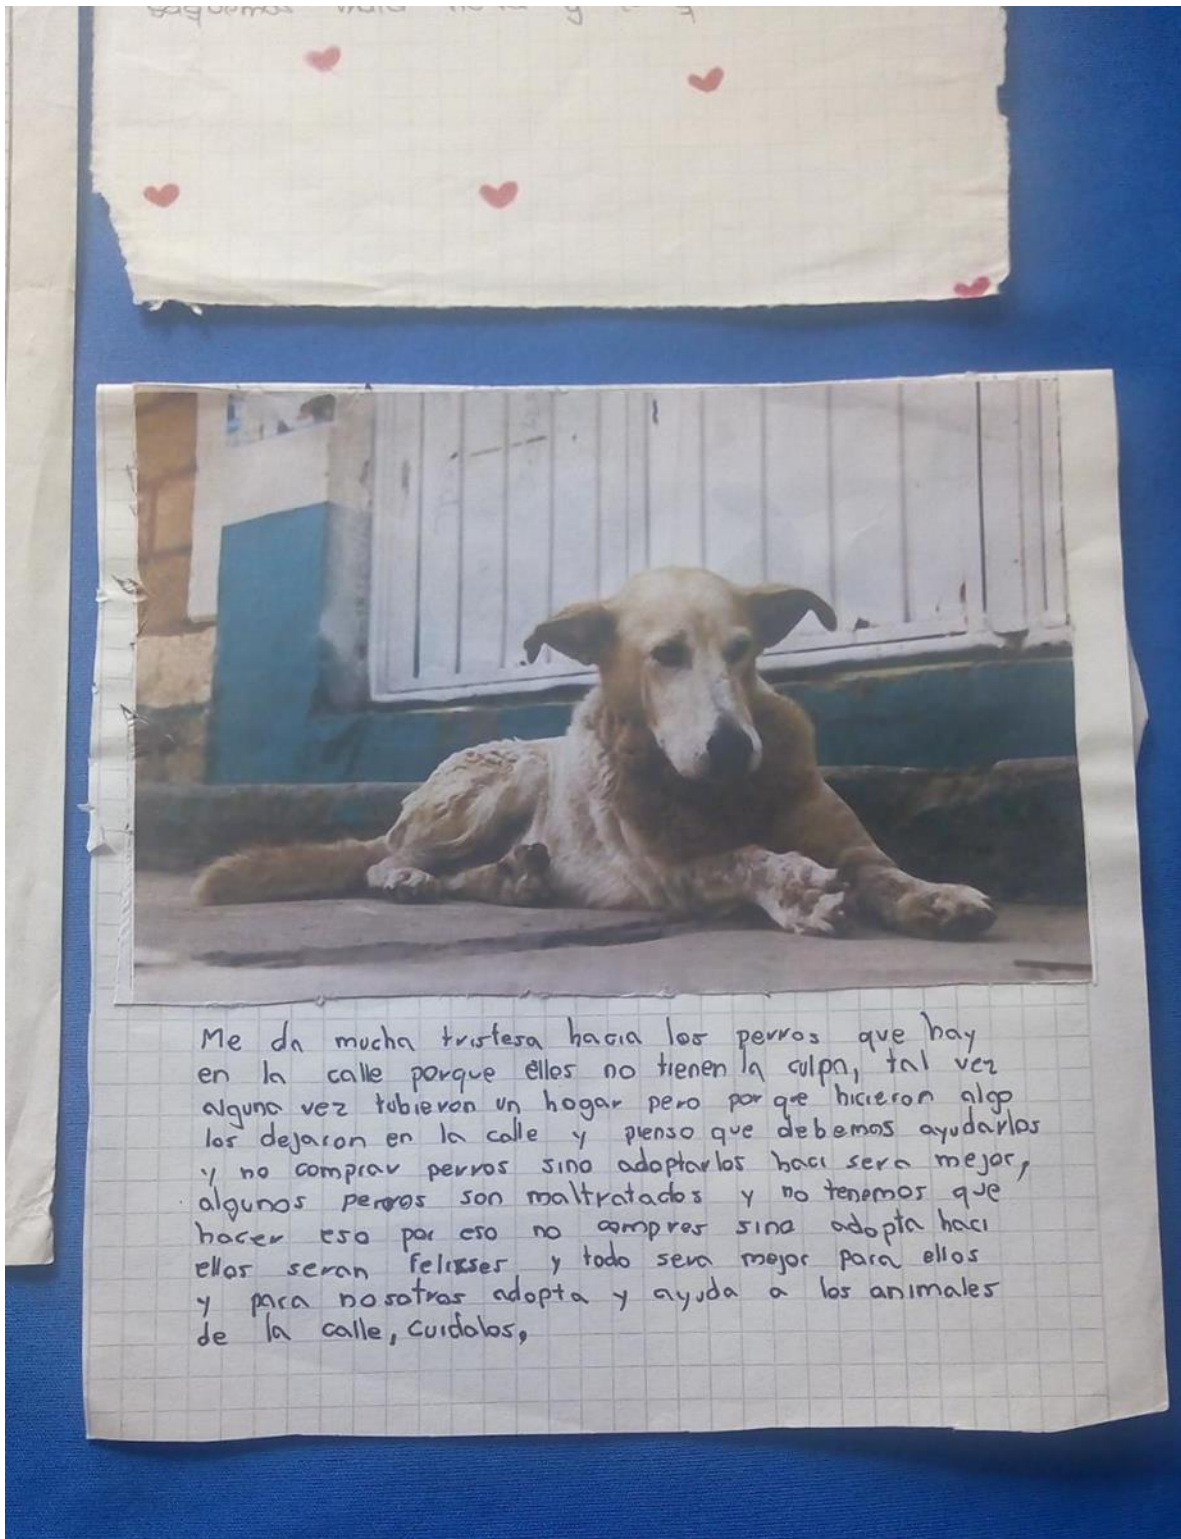 Me da mucha tristesa hacia los perros que hay
en la calle porque ellos no tienen la culpa, tal vez
alguna vez tubieron un hogar pero por que hicieron algo
los dejaron en la calle y pienso que debemos ayudarlos
y no comprar perros sino adoptarlos haci sera mejor,
algunos perros son maltratados y no tenemos que
hacer eso por eso no compres sino adopta haci
ellos seran felixses y todo sera mejor para ellos
y para nosotros adopta y ayuda a los animales
de la calle, cuidalos,